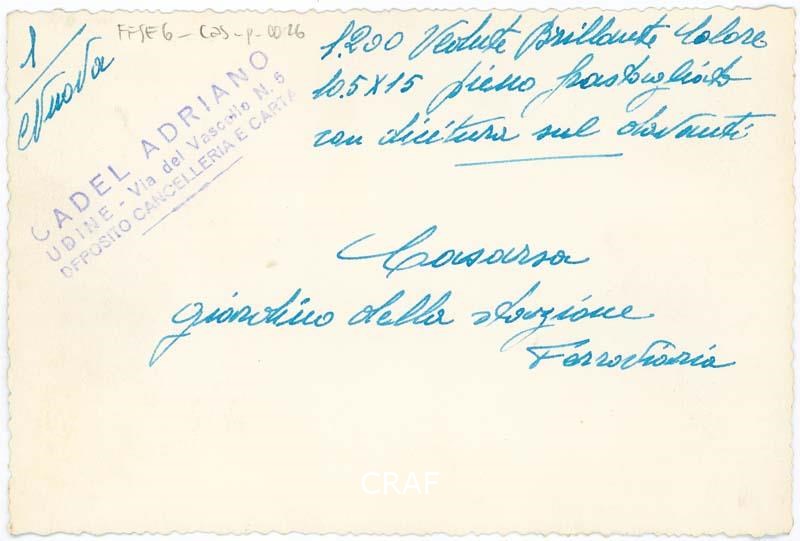 1
Nuova
FFSEG - CaS - p - 0026
CADEL ADRIANO
UDINE - Via del Vascello N. 6
DEPOSITO CANCELLERIA E CARTA
1.200 Vedute Brillante Colore
10.5X15 pieno frastagliato
con dicitura sul davanti
Casarsa
giardino della stazione
Ferroviaria
CRAF